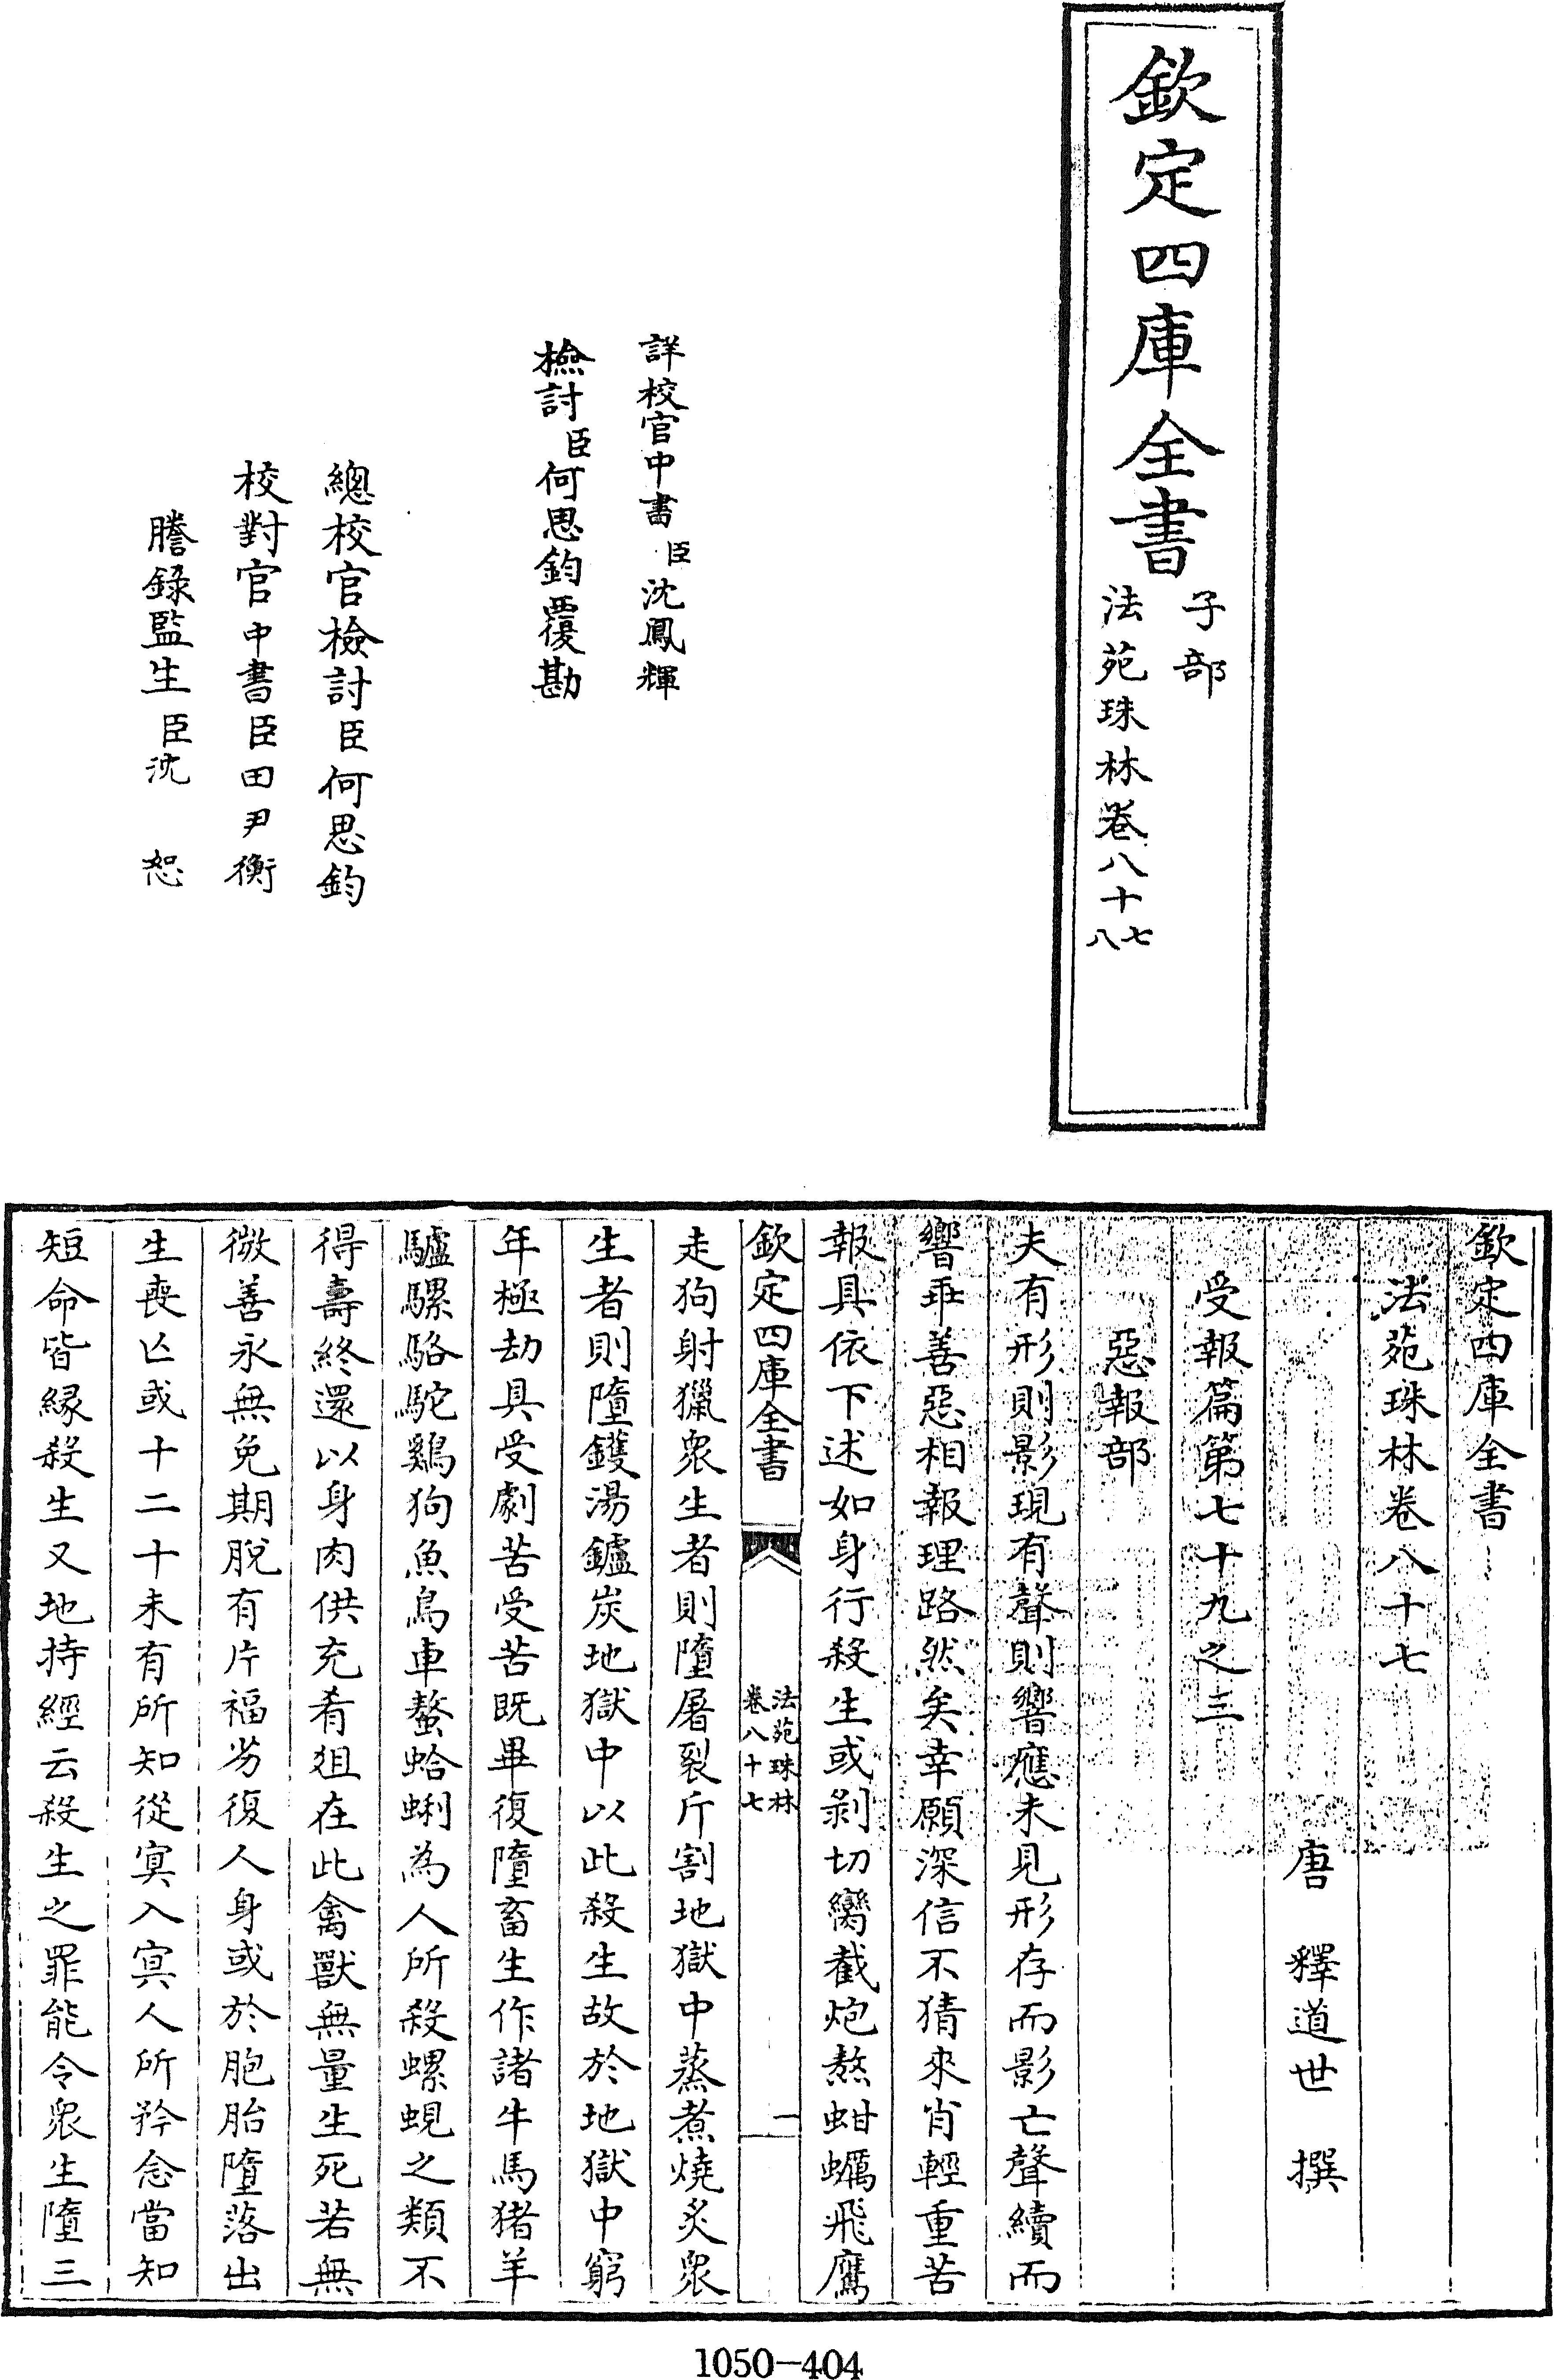 欽定四庫全書
子部
法苑珠林卷八十七
八
詳校官中書臣沈鳳輝
檢討臣何思鈞覆勘
總校官檢討臣何思鈞
校對官中書臣田尹衡
謄錄監生臣沈恕
欽定四庫全書
法苑珠林卷八十七
唐 釋道世 撰
受報篇第七十九之三
惡報部
夫有形則影現有聲則響應未見形存而影亡聲續而
響乖善惡相報理路然矣幸願深信不猜來肖輕重苦
報具依下述如身行殺生或剝切臠截炮熬蚶蠣飛鷹
欽定四庫全書
法苑珠林
卷八十七
一
走狗射獵衆生者則墮屠裂斤割地獄中蒸煮燒炙衆
生者則墮鑊湯鑪炭地獄中以此殺生故於地獄中窮
年極劫具受劇苦受苦既畢復墮畜生作諸牛馬猪羊
驢騾駱駝鷄狗魚鳥車螯蛤蜊為人所殺螺蜆之類不
得壽終還以身肉供充肴俎在此禽獸無量生死若無
微善永無免期脫有片福劣復人身或於胞胎墮落出
生喪亾或十二十未有所知從冥入冥人所矜念當知
短命皆縁殺生又地持經云殺生之罪能令衆生墮三
1050-404